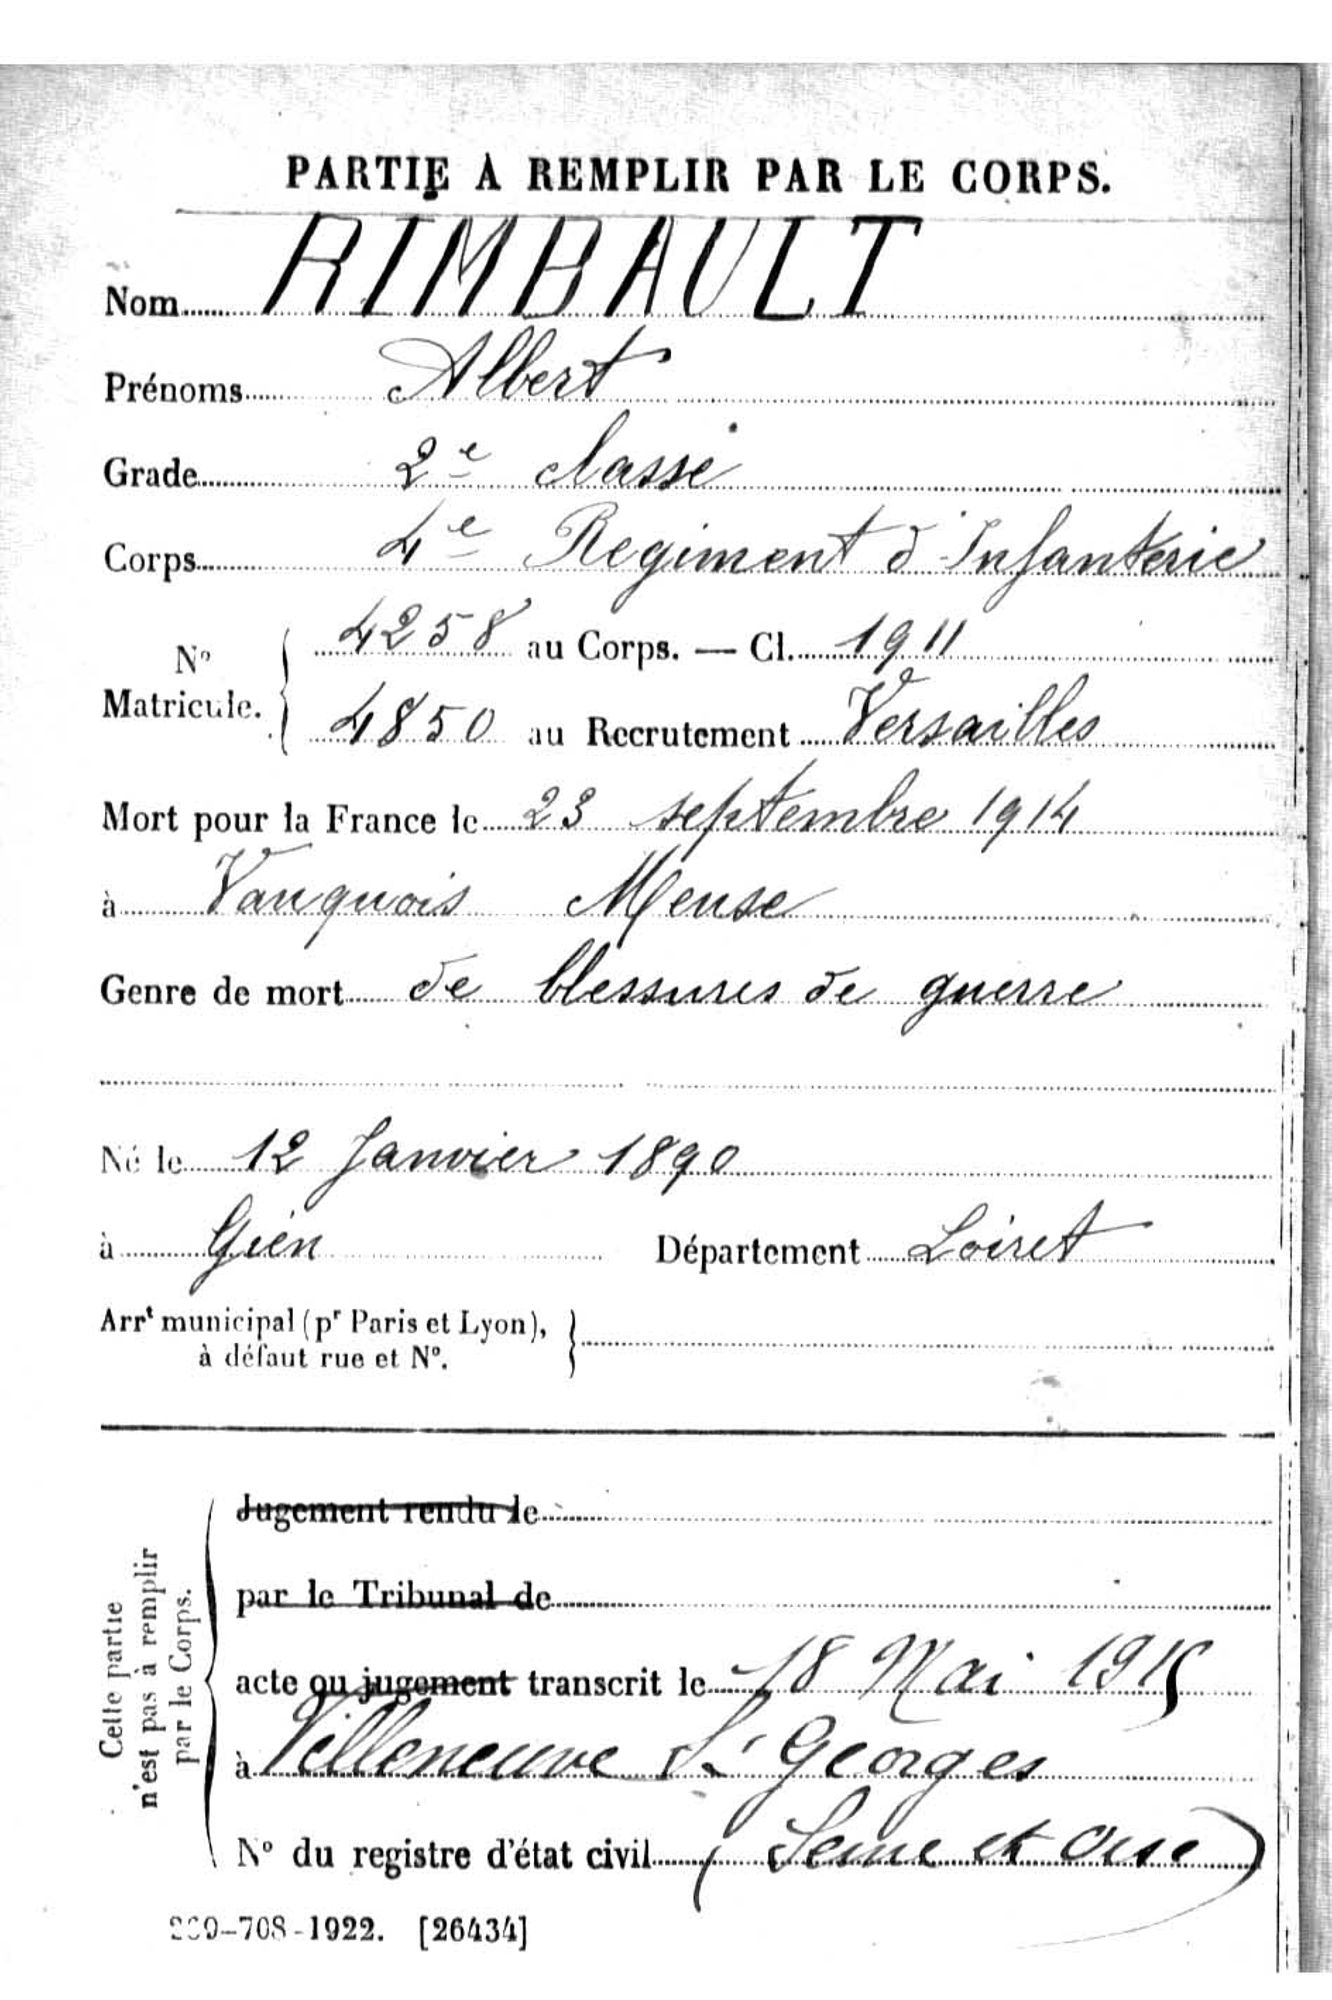 PARTIE À REMPLIR PAR LE CORPS.
Nom RIMBAULT
Prénoms Albert
Grade 2e classe
Corps 4e Regiment d'Infanterie
No Matricule. { 4258 au Corps. — Cl. 1911
4850 au Recrutement Versailles
Mort pour la France le 23 septembre 1914
à Vauquois Meuse
Genre de mort de blessures de guerre
Né le 12 Janvier 1890
à Gien Département Loiret
Arrt municipal (pr Paris et Lyon), }
à défaut rue et No.
Cette partie
n'est pas à remplir
par le Corps.
Jugement rendu le
par le Tribunal de
acte ou jugement transcrit le 18 Mai 1915
à Villeneuve St Georges
No du registre d'état civil (Seine et Oise)
-708-1922. [26434]